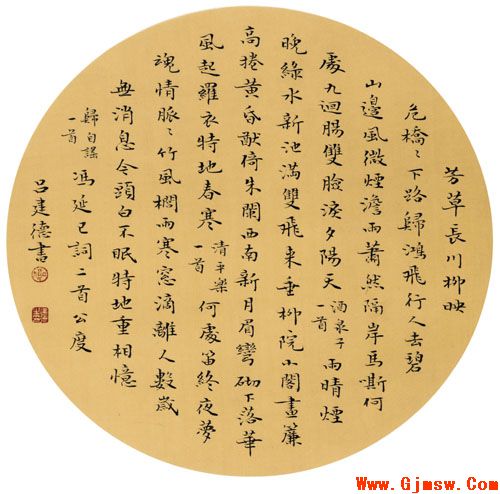 芳草長川柳映
危橋〻下路歸鴻飛行人去碧
山邊風微煙澹雨蕭然隔岸馬嘶何
處九迴腸雙臉淚夕陽天 酒泉子一首 雨晴煙
晚綠水新池滿雙飛來垂柳院小閣畫簾
高捲黃昏獨倚朱闌西南新月眉彎砌下落華
風起羅衣特地春寒 清平樂一首 何處笛終夜夢
魂情脈〻竹風櫩雨寒窗滴離人數歲
無消息今頭白不眠特地重相憶
歸自謠一首 馮延巳詞二首 公度
呂建德書
Www.Gjmsw.Com